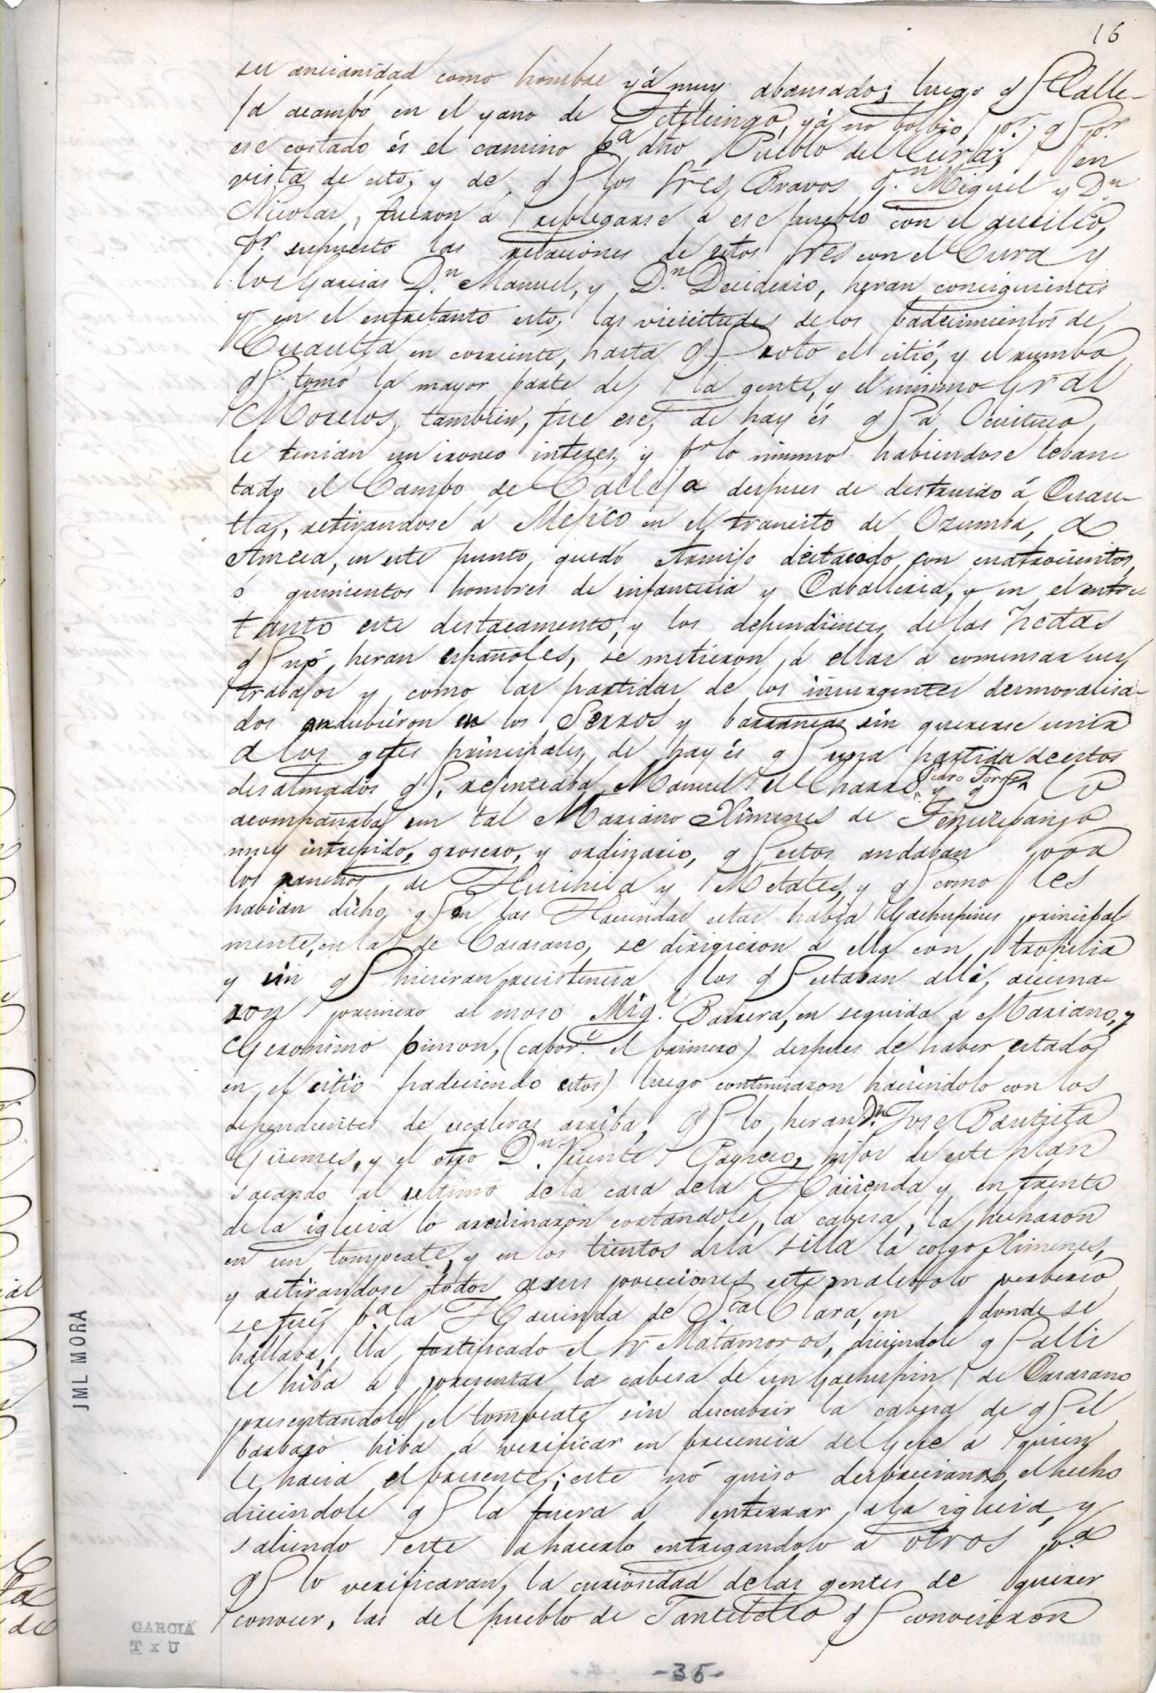 16
su ancianidad como hombre yá muy abansado; luego q̃ Calle-
ja acampó en el yano de yá no bolbio, pr. q̃ pr.
ese costado és el camino pa. dho Pueblo del Cura; en
vista de esto, y de q̃ los Sres. Bravos Dn. Miguel y Dn
Nicolas, fueron á replegarse á ese pueblo con el aucilio,
pr. supuesto las relaciones de estos Sres con el Cura y
los Garcias Dn. Manuel, y Dn. Deciderio, heran consiguientes
y en el entretanto esto, las vicicitudes de los padecimientos de
Cuautla en corriente, hasta q̃ roto el citió, y el rumbo
q̃ tomó la mayor parte de la gente, y el mismo Gral
Morelos, tambien, fue ese, de hay és q̃ á Ocuituco
le tenian un interes, y pr. lo mismo habiendose leban-
tado el Campo de Calleja despues de destruido á Cuau-
tla, retirandose á Mejico en el trancito de Ozumba, á
Ameca, en este punto, quedó Armijo destacado con cuatrocientos,
o quinientos hombres de infanteria y Caballeria, y en el entre
tanto este destacamento, y los dependientes de las Hcdas
q̃ nó heran españoles, se metieron á ellas á comensar sus
trabajos y como las partidas de los insurgentes desmoralisa-
dos andubieron en los Serros y barrancas sin quererse unir
á los gefes principales, de hay és q̃ una partida de estos
desalmados q̃ Manuel el Charro y Pedro Jorge q̃ lo
acompañaba un tal Mariano Ximenes de
muy intrepido, grosero, y ordinario, q̃ estos andaban por
los ranchos de y Metates, y q̃ como les
habian dicho q̃ en las Haciendas estas habia Gachupines principal
mente, en la de Casasano, se dirigieron a ella con tropelia
y sin q̃ hicieran resistencia los q̃ estaban alli, acecina-
ron primero al moso Mig.l Barrera, en seguida á Mariano, y
Geronimo pinson, (cabor.l el primero) despues de haber estado
en el sitio padeciendo estos) luego continuaron haciendolo con los
dependientes de escaleras arriba, q̃ lo heran Dn. Jose Bautista
Guemes, y el otro Dn. Vicente hijos de este plan
sacando al ultimo de la casa de la Hacienda y en frente
de la iglecia lo acecinaron cortandole, la cabesa, la hecharon
en un tompeate, y en los tientos de la silla la colgo Ximenes,
y retirandose todos á sus pociciones este malebolo perberso
se fué pa. la Hacienda de Sta. Clara, en donde se
hallaba, lla fortificado el Sr Matamoros, diciendole q̃ alli
le hiba á presentar la cabesa de un Gachupin de Casasano
presentandole el tompeate sin descubrir la cabesa de q̃ el
barbaro hiba á verificar en precencia del Gefe á quien
le hacia el presente; este nó quiso despreciando el hecho
diciendole q̃ la fuera á enterrar á la iglecia, y
saliendo este á hacerlo entregandolo á otros pa.
q̃ lo verificaran, la curiosidad de las gentes de querer
conocer, las del pueblo de q̃ conocieron
JML MORA
GARCIA
T x U
-35-